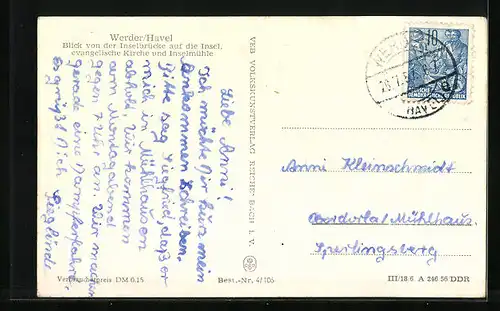 Werder/Havel
Blick von der Inselbrücke auf die Insel,
evangelische Kirche und Inselmühle
Liebe Anni!
Ich möchte Dir kurz mein
Ankommen schreiben.
Bitte sag Siegfried, daß er
mich in Mühlhausen
abholt. Wir kommen
am Montagabend
gegen 7 Uhr an. Wir machen
gerade eine Dampferfahrt.
es grüßt Dich
Sieglinde
Verbraucherpreis DM 0.15
Best.-Nr. 4/106
VEB VOLKSKUNSTVERLAG REICHENBACH I. V.
WERDER
HAVEL
10
DEUTSCHE
DEMOKRATISCHE REPUBLIK
Anni Kleinschmidt
Mühlhaus.
Sperlingsberg
III/18/6 A 246 56 DDR